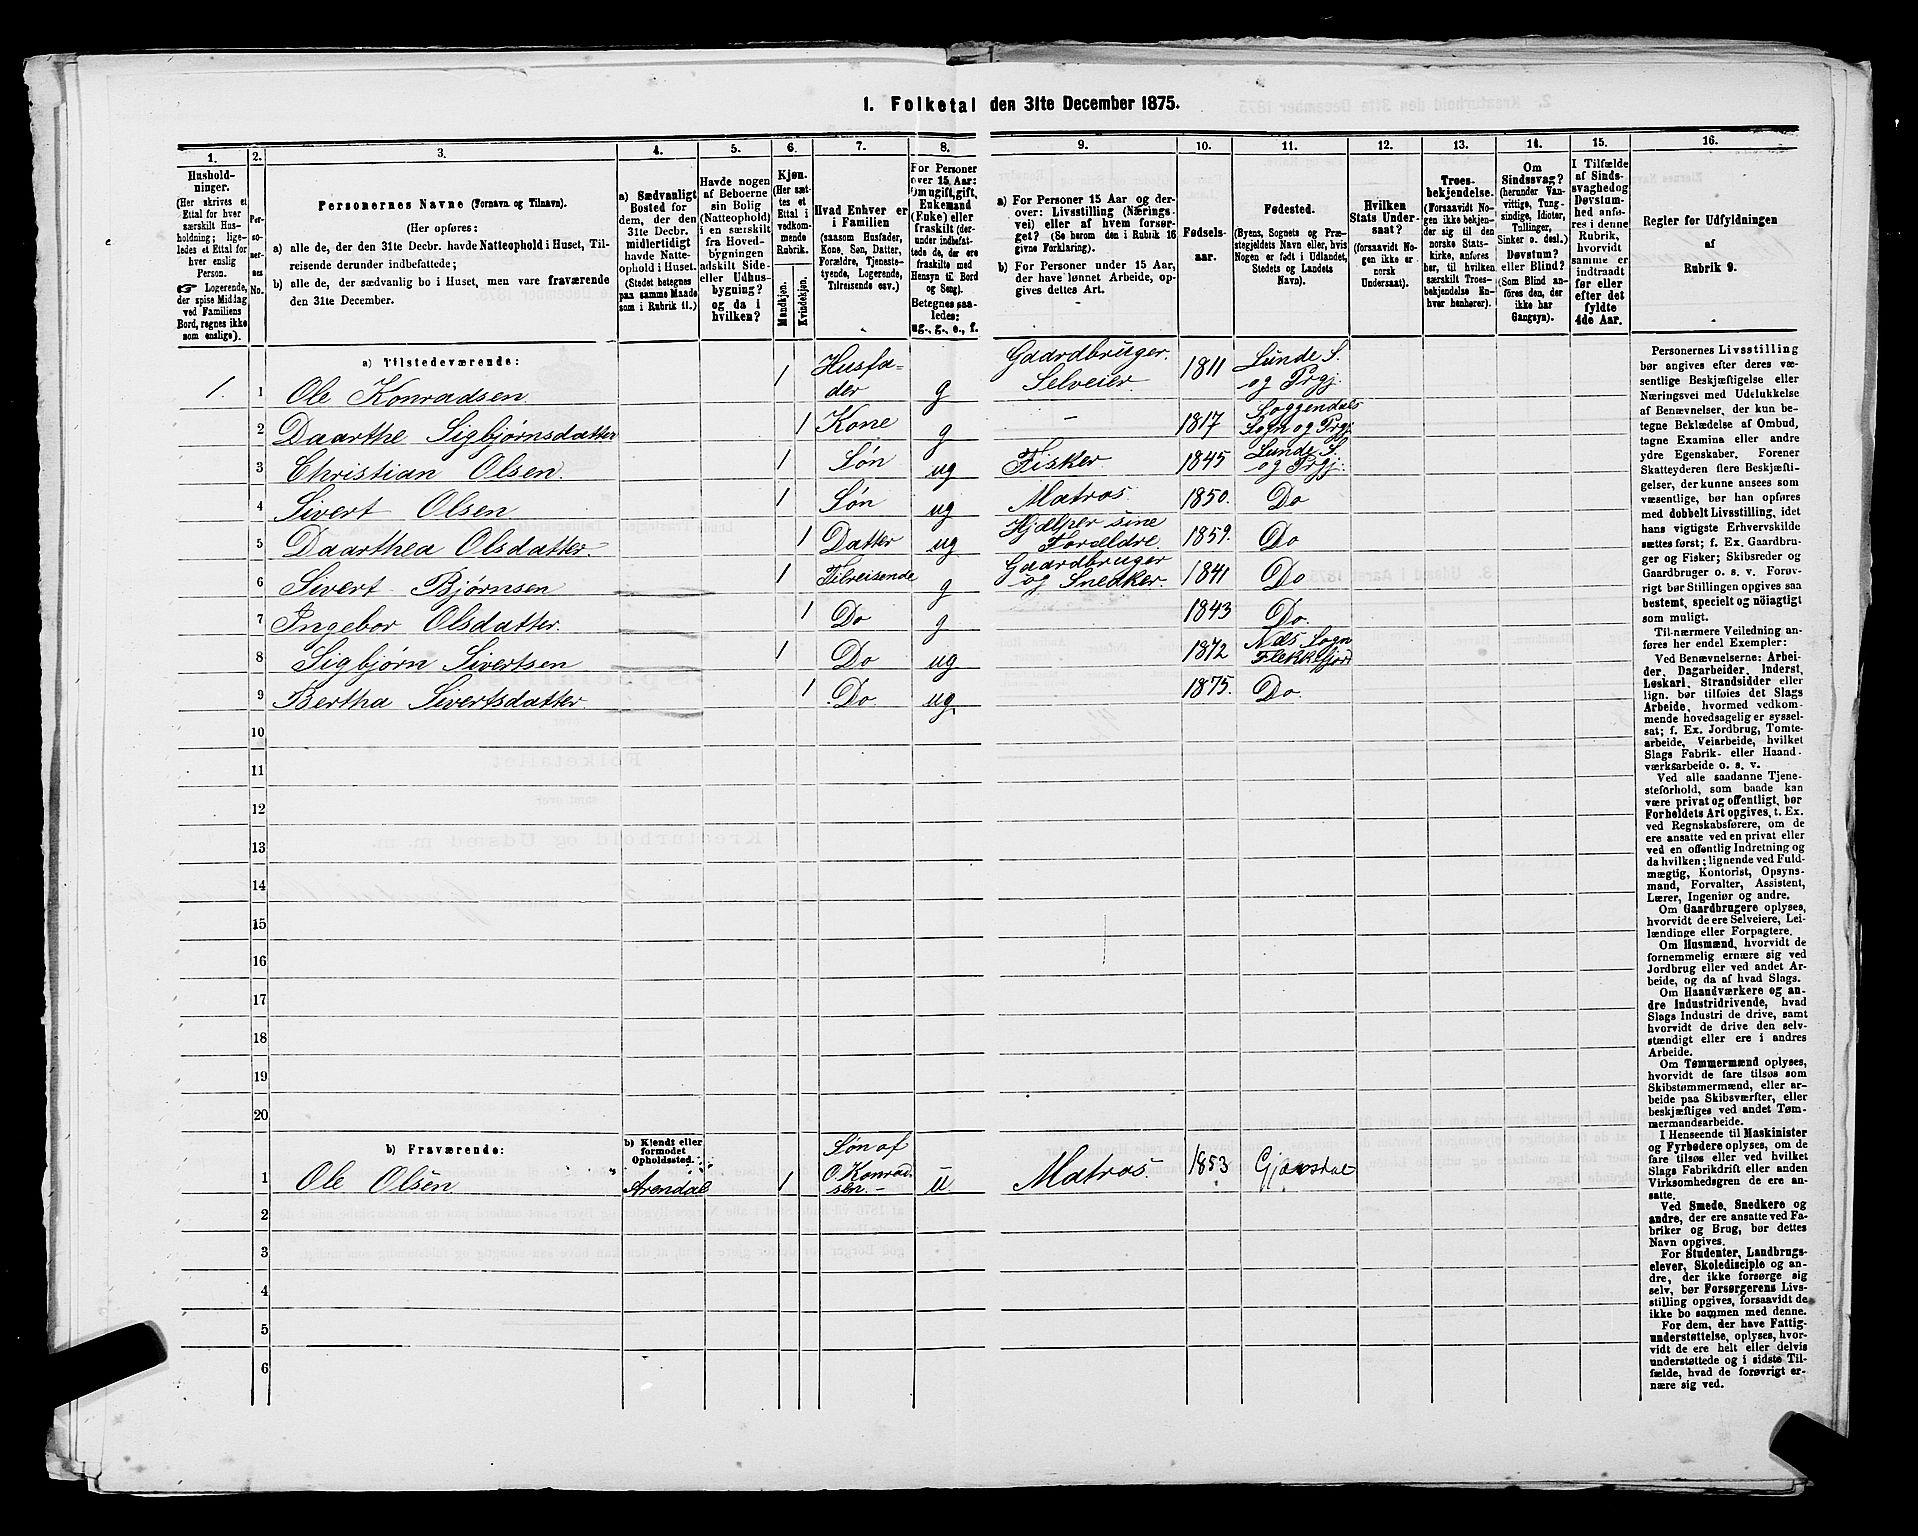 1. Folketal den 31te December 1875.
1.
2.
3.
4.
5.
6.
7.
8.
9.
10.
11.
12.
13.
14.
15.
16.
Hushold-
ninger.
(Her skrives et
Ettal for hver
særskilt Hus-
holdning; lige-
ledes et Ettal for
hver enslig
Person.
☞ Logerende,
der spise Middag
ved Familiens
Bord, regnes ikke
som enslige).
Per-
so-
ner-
nes
No.
Personernes Navne (Fornavn og Tilnavn).
(Her opføres:
a) alle de, der den 31te Decbr. havde Natteophold i Huset, Til-
reisende derunder indbefattede;
b) alle de, der sædvanlig bo i Huset, men vare fraværende
den 31te December.
a) Sædvanligt
Bosted for
dem, der den
31te Decbr.
midlertidigt
havde Natte-
ophold i Huset.
(Stedet betegnes
paa samme Maade
som i Rubrik 11.)
Havde nogen
af Beboerne
sin Bolig
(Natteophold)
i en særskilt
fra Hoved-
bygningen
adskilt Side-
eller Udhus-
bygning?
og da i
hvilken?
Kjøn.
(Her sæt-
tes et
Ettal i
vedkom-
mende
Rubrik.
Mandkjøn.
Kvindekjøn.
Hvad Enhver er
i Familien
(saasom Husfader,
Kone, Søn, Datter,
Forældre, Tjeneste-
tyende, Logerende,
Tilreisende osv.)
For Personer
over 15 Aar:
Om ugift, gift,
Enkemand
(Enke) eller
fraskilt (der-
under indbefat-
tede de, der ere
fraskilte med
Hensyn til Bord
og Seng).
Betegnes saa-
ledes:
ug., g., e., f.
a) For Personer 15 Aar og der-
over: Livsstilling (Nærings-
vei) eller af hvem forsør-
get? (Se herom den i Rubrik 16
givne Forklaring).
b) For Personer under 15 Aar,
der have lønnet Arbeide, op-
gives dettes Art.
Fødsels-
aar.
Fødested.
(Byens, Sognets og Præ-
stegjeldets Navn eller, hvis
Nogen er født i Udlandet,
Stedets og Landets
Navn).
Hvilken
Stats Under-
saat?
(forsaavidt No-
gen ikke er
norsk
Undersaat).
Troes-
bekjendelse.
(Forsaavidt No-
gen ikke bekjen-
der sig til den
norske Stats-
kirke, anføres
her, til hvilken
særskilt Troes-
bekjendelse En-
hver henhører).
Om
Sindssvag?
(herunder Van-
vittige, Tung-
sindige, Idioter,
Tullinger,
Sinker o. desl.)
Døvstum?
eller Blind?
(Som Blind an-
føres den, der
ikke har
Gangsyn).
I Tilfælde
af Sinds-
svaghed og
Døvstum-
hed anfø-
res i denne
Rubrik,
hvorvidt
samme er
indtraadt
før eller
efter det
fyldte
4de Aar.
Regler for Udfyldningen
af
Rubrik 9.
a) Tilstedeværende:
1. 1 Ole Konradsen 1 Husfa-der g Gaardbruger. Selveier 1811 Lunde S. og Prgj.
2 Daarthe Sigbjørnsdatter 1 Kone g - 1817 Soggendals Sogn og Prgj.
3 Christian Olsen. 1 Søn ug Fisker. 1845 Lunde S. og Prgj.
4 Sivert Olsen 1 Søn ug Matros. 1850. Do
5 Daarthea Olsdatter. 1 Datter ug Hjælper sine Forældre. 1859. Do
6 Sivert Bjørnsen 1 Tilreisende g Gaardbruger og Snedker. 1841 Do
7 Ingebor Olsdatter. 1 Do g 1843 Do.
8 Sigbjørn Sivertsen 1 Do ug 1872 Næs Sogn Flekkefjord
9 Bertha Sivertsdatter. 1 Do ug. 1875. Do.
10
11
12
13
14
15
16
17
18
19
20
b) Fraværende:
b) Kjendt eller
formodet
Opholdssted.
1 Ole Olsen Arendal 1 Søn af O. Konrad-sen. u Matros. 1853
2
3
4
5
6
Personernes Livsstilling
bør angives efter deres væ-
sentlige Beskjæftigelse eller
Næringsvei med Udelukkelse
af Benævnelser, der kun be-
tegne Beklædelse af Ombud,
tagne Examina eller andre
ydre Egenskaber. Forener
Skatteyderen flere Beskjæfti-
gelser, der kunne ansees som
væsentlige, bør han opføres
med dobbelt Livsstilling, idet
hans vigtigste Erhvervskilde
sættes først; f. Ex. Gaardbru-
ger og Fisker; Skibsreder og
Gaardbruger o. s. v. Forøv-
rigt bør Stillingen opgives saa
bestemt, specielt og nöiagtigt
som muligt.
Til nærmere Veiledning an-
føres her endel Exempler:
Ved Benævnelserne: Arbei-
der, Dagarbeider, Inderst,
Løskarl, Strandsidder eller
lign. bør tilføies det Slags
Arbeide, hvormed vedkom-
mende hovedsagelig er syssel-
sat; f. Ex. Jordbrug, Tomte-
arbeide, Veiarbeide, hvilket
Slags Fabrik- eller Haand-
værksarbeide o. s. v.
Ved alle saadanne Tjene-
steforhold, som baade kan
være privat og offentligt, bør
Forholdets Art opgives, t. Ex.
ved Regnskabsførere, om de
ere ansatte ved en privat eller
ved en offentlig Indretning og
da hvilken; lignende ved Fuld-
mægtig, Kontorist, Opsyns-
mand, Forvalter, Assistent,
Lærer, Ingeniør og andre.
Om Gaardbrugere oplyses,
hvorvidt de ere Selveiere, Lei-
lændinge eller Forpagtere.
Om Husmænd, hvorvidt de
fornemmelig ernære sig ved
Jordbrug eller ved andet Ar-
beide, og da af hvad Slags.
Om Haandværkere og an-
dre Industridrivende, hvad
Slags Industri de drive, samt
hvorvidt de drive den selv-
stændigt eller ere i andres
Arbeide.
Om Tømmermænd oplyses,
hvorvidt de fare tilsøs som
Skibstømmermænd, eller ar-
beide paa Skibsværfter, eller
beskjæftiges ved andet Tøm-
mermandsarbeide.
I Henseende til Maskinister
og Fyrbødere oplyses, om de
fare tilsøs eller ved hvilket
Slags Fabrikdrift eller anden
Virksomhedsgren de ere an-
satte.
Ved Smede, Snedkere og
andre, der ere ansatte ved Fa-
briker og Brug, bør dettes
Navn opgives.
For Studenter, Landbrugs-
elever, Skoledisciple og an-
dre, der ikke forsørge sig
selv, bør Forsørgerens Livs-
stilling opgives, forsaavidt de
ikke bo sammen med denne.
For dem, der have Fattig-
understøttelse, oplyses, hvor-
vidt de ere helt eller delvis
understøttede og i sidste Til-
fælde, hvad de forøvrigt er-
nære sig ved.